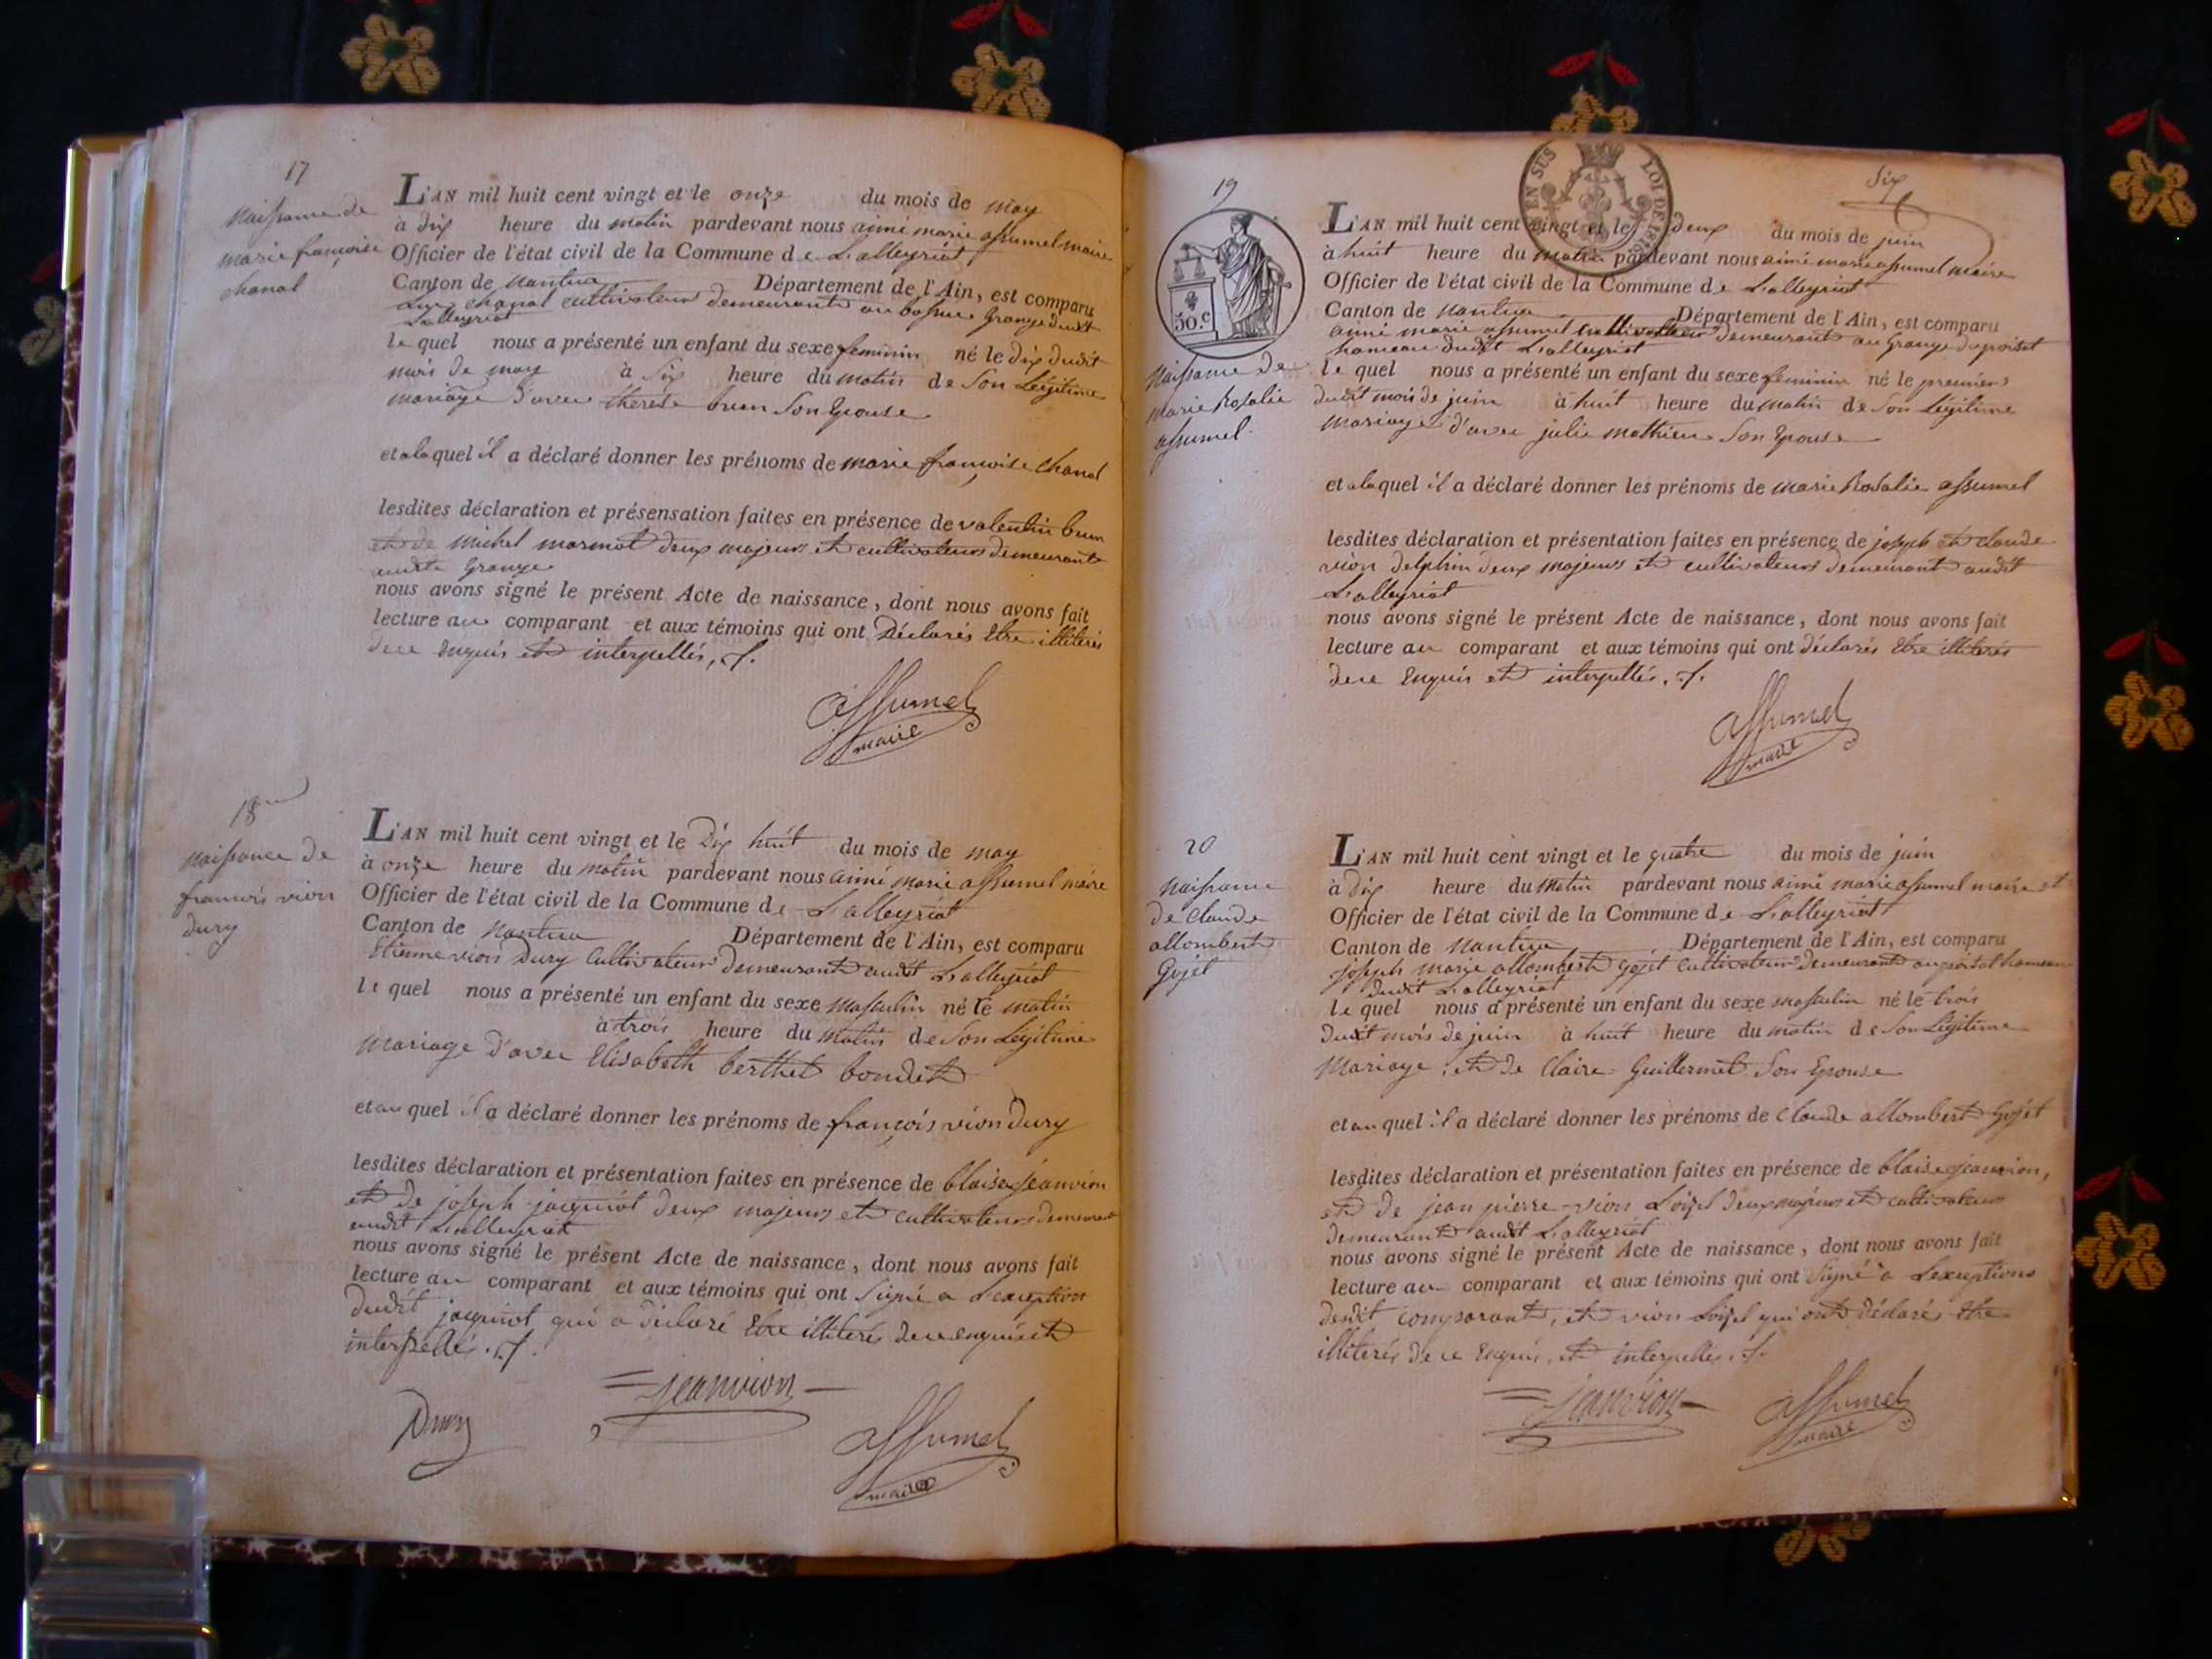 17
Naissance de
marie françoise
chanal
L'AN mil huit cent vingt et le onze du mois de may
à dix heure du matin pardevant nous aimé marie assumel maire
Officier de l'état civil de la Commune de Lalleyriat
Canton de Nantua Département de l'Ain, est comparu
chanal cultivateur demeurant grange dudit
Lalleyriat
le quel nous a présenté un enfant du sexe feminin né le dix dudit
mois de may à six heure du matin de son Légitime
mariage d'avec thérèse brun son Epouse
et a laquel il a déclaré donner les prénoms de marie françoise chanal
lesdites déclaration et présensation faites en présence de valentin brun
et de michel marmot deux majeurs et cultivateurs demeurant
audit grange
nous avons signé le présent Acte de naissance, dont nous avons fait
lecture au comparant et aux témoins qui ont Déclarés Etre illitérés
de ce enquis et interpellés, ./.
assumel
maire
18
Naissance de
francois vion
dury
L'AN mil huit cent vingt et le Dix huit du mois de may
à onze heure du matin pardevant nous aimé marie assumel maire
Officier de l'état civil de la Commune de Lalleyriat
Canton de Nantua Département de l'Ain, est comparu
Etienne vion Dury Cultivateur Demeurant audit Lalleyriat
le quel nous a présenté un enfant du sexe masculin né le matin
à trois heure du matin de son Légitime
mariage d'avec Elisabeth berthet bondet
et au quel il a déclaré donner les prénoms de françois vion Dury
lesdites déclaration et présentation faites en présence de blaise jeanvion
et de joseph jacquiot deux majeurs et cultivateurs demeurant
audit Lalleyriat
nous avons signé le présent Acte de naissance, dont nous avons fait
lecture au comparant et aux témoins qui ont signé a Lexception
dudit jacquiot qui a déclaré Etre illitérés de ce enquis et
interpellé ./.
Dury
jeanvion
assumel
maire
EN SUS LOI DE 1816
six
19
50.c
Naissance de
marie Rosalie
assumel
L'AN mil huit cent vingt et le deux du mois de juin
à huit heure du matin pardevant nous aimé marie assumel maire
Officier de l'état civil de la Commune de Lalleyriat
Canton de Nantua Département de l'Ain, est comparu
aimé marie assumel cultivateur demeurant au grange
hameau dudit Lalleyriat
le quel nous a présenté un enfant du sexe feminin né le premier
dudit mois de juin à huit heure du matin de son Légitime
mariage d'avec julie mathieu son Epouse
et a laquel il a déclaré donner les prénoms de marie Rosalie assumel
lesdites déclaration et présentation faites en présence de joseph et claude
vion delphin deux majeurs et cultivateurs demeurant audit
Lalleyriat
nous avons signé le présent Acte de naissance, dont nous avons fait
lecture au comparant et aux témoins qui ont déclarés Etre illitérés
de ce Enquis et interpellés, ./.
assumel
maire
20
Naissance
de claude
allombert
Gojet
L'AN mil huit cent vingt et le quatre du mois de juin
à dix heure du matin pardevant nous aimé marie assumel maire et
Officier de l'état civil de la Commune de Lalleyriat
Canton de Nantua Département de l'Ain, est comparu
joseph marie allombert gojet cultivateur demeurant hameau
dudit Lalleyriat
le quel nous a présenté un enfant du sexe masculin né le trois
dudit mois de juin à huit heure du matin de son Légitime
Mariage, et de Claire Guillermet son Epouse
et au quel il a déclaré donner les prénoms de Claude allombert Gojet
lesdites déclaration et présentation faites en présence de blaise jeanvion,
et de jean pierre vion Loizel deux majeurs et cultivateurs
demeurant audit Lalleyriat
nous avons signé le présent Acte de naissance, dont nous avons fait
lecture au comparant et aux témoins qui ont signé a Lexceptions
dudit comparant, et vion Loizel qui ont Déclarés Etre
illitérés de ce Enquis, et interpellés ./.
jeanvion
assumel
maire